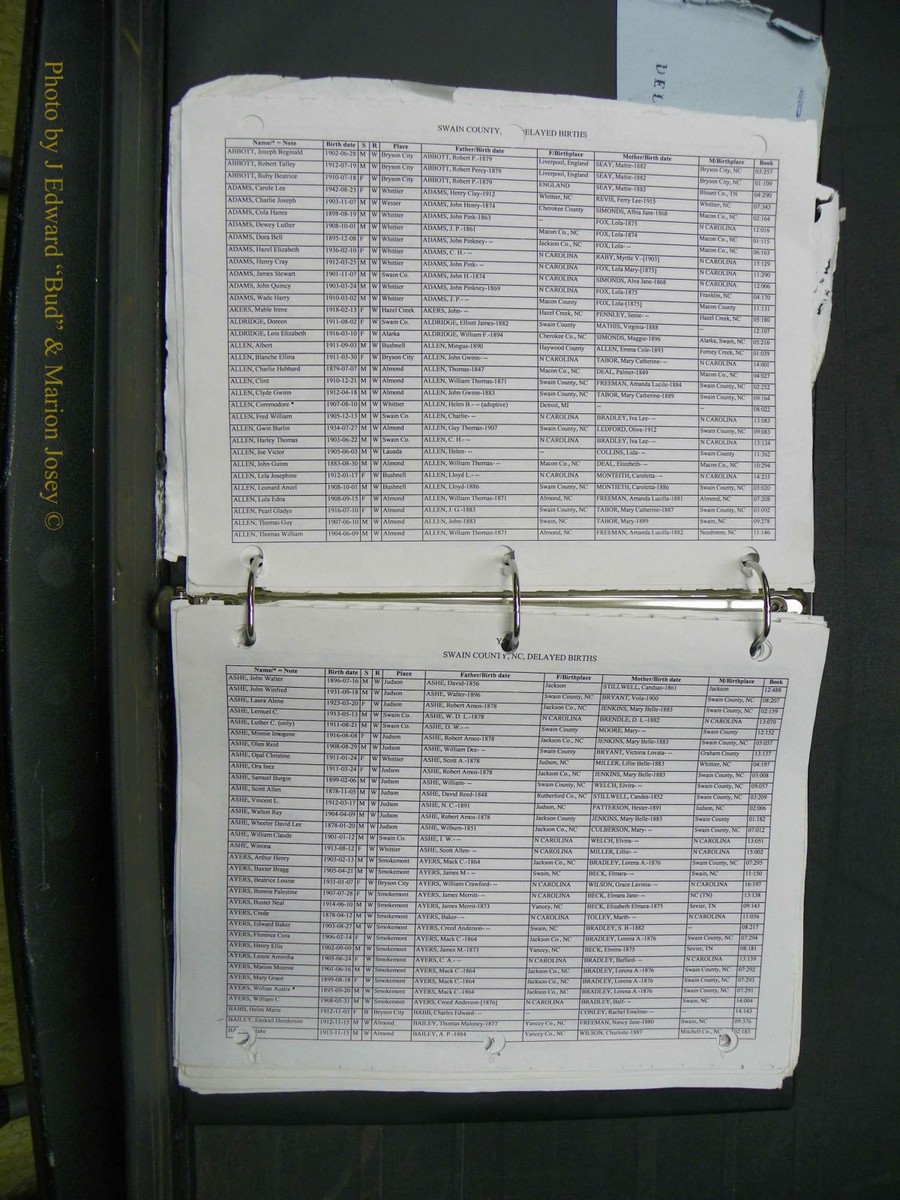 Photo by J Edward “Bud” & Marion Josey ©
DEL
SWAIN COUNTY, DELAYED BIRTHS
Name/* = Note Birth date S R Place Father/Birth date F/Birthplace Mother/Birth date M/Birthplace Book
ABBOTT, Joseph Reginald 1902-06-28 M W Bryson City ABBOTT, Robert P.-1879 Liverpool, England SEAY, Mattie-1882 Bryson City, NC 03:257
ABBOTT, Robert Talley 1912-07-19 M W Bryson City ABBOTT, Robert Percy-1879 Liverpool, England SEAY, Mattie-1882 Bryson City, NC 01:109
ABBOTT, Ruby Beatrice 1910-07-18 F W Bryson City ABBOTT, Robert P.-1879 ENGLAND SEAY, Mattie-1882 Blount Co., TN 04:290
ADAMS, Carole Lee 1942-08-23 F W Whittier ADAMS, Henry Clay-1912 Whittier, NC REVIS, Ferry Lee-1915 Whittier, NC 07:343
ADAMS, Charlie Joseph 1903-11-07 M W Wesser ADAMS, John Henry-1874 Cherokee County SIMONDS, Alva Jane-1868 Macon Co., NC 02:164
ADAMS, Cola Hanes 1898-08-19 M W Whittier ADAMS, John Pink-1863 -- FOX, Lola-1875 N CAROLINA 12:016
ADAMS, Dewey Luther 1908-10-01 M W Whittier ADAMS, J. P.-1861 Macon Co., NC FOX, Lola-1874 Macon Co., NC 01:115
ADAMS, Dora Bell 1895-12-08 F W Whittier ADAMS, John Pinkney- -- Jackson Co., NC FOX, Lola- -- N CAROLINA 06:163
ADAMS, Hazel Elizabeth 1936-02-10 F W Whittier ADAMS, C. H.- -- N CAROLINA RABY, Myrtle V.-[1903] N CAROLINA 15:129
ADAMS, Henry Cray 1912-03-25 M W Whittier ADAMS, John Pink- -- N CAROLINA FOX, Lola Mary-[1875] N CAROLINA 11:290
ADAMS, James Stewart 1901-11-07 M W Swain Co. ADAMS, John H.-1874 N CAROLINA SIMONDS, Alva Jane-1868 N CAROLINA 12:006
ADAMS, John Quincy 1903-03-24 M W Whittier ADAMS, John Pinkney-1869 N CAROLINA FOX, Lola-1875 Franklin, NC 04:170
ADAMS, Wade Harry 1910-03-02 M W Whittier ADAMS, J. P.- -- Macon County FOX, Lola-[1875] Macon County 11:131
AKERS, Mable Irene 1918-02-13 F W Hazel Creek AKERS, John- -- Hazel Creek, NC PENNLEY, Senie- -- Hazel Creek, NC 05:180
ALDRIDGE, Doreen 1911-08-02 F W Swain Co. ALDRIDGE, Elliott James-1882 Swain County MATHIS, Virginia-1888 -- 12:107
ALDRIDGE, Lois Elizabeth 1916-03-10 F W Alarka ALDRIDGE, William F.-1894 Cherokee Co., NC SIMONDS, Maggie-1896 Alarka, Swain, NC 05:216
ALLEN, Albert 1911-09-03 M W Bushnell ALLEN, Mingus-1890 Haywood County ALLEN, Emma Cole-1893 Forney Creek, NC 01:039
ALLEN, Blanche Ellina 1911-03-30 F W Bryson City ALLEN, John Gwinn- -- N CAROLINA TABOR, Mary Catherine- -- N CAROLINA 14:001
ALLEN, Charlie Hubbard 1879-07-07 M W Almond ALLEN, Thomas-1847 Macon Co., NC DEAL, Palmer-1849 Macon Co., NC 04:027
ALLEN, Clint 1910-12-21 M W Almond ALLEN, William Thomas-1871 Swain County, NC FREEMAN, Amanda Lucile-1884 Swain County, NC 02:252
ALLEN, Clyde Gwinn 1912-04-18 M W Almond ALLEN, John Gwinn-1883 Swain County, NC TABOR, Mary Catherine-1889 Swain County, NC 09:164
ALLEN, Commodore * 1907-08-10 M W Whittier ALLEN, Helen B.- -- (adoptive) Detroit, MI -- -- 08:022
ALLEN, Fred William 1905-12-13 M W Swain Co. ALLEN, Charlie- -- N CAROLINA BRADLEY, Iva Lee- -- N CAROLINA 13:083
ALLEN, Gwin Burlin 1934-07-27 M W Almond ALLEN, Guy Thomas-1907 Swain County, NC LEDFORD, Olive-1912 Swain County, NC 09:083
ALLEN, Harley Thomas 1903-06-22 M W Swain Co. ALLEN, C. H.- -- N CAROLINA BRADLEY, Iva Lee- -- N CAROLINA 13:134
ALLEN, Joe Victor 1905-06-03 M W Lauada ALLEN, Helen- -- -- COLLINS, Lida- -- Swain County 11:362
ALLEN, John Guinn 1883-08-30 M W Almond ALLEN, William Thomas- -- Macon Co., NC DEAL, Elizabeth- -- Macon Co., NC 10:294
ALLEN, Lela Josephine 1912-01-17 F W Bushnell ALLEN, Lloyd L.- -- N CAROLINA MONTEITH, Caroletta- -- N CAROLINA 14:233
ALLEN, Leonard Ancel 1908-10-01 M W Bushnell ALLEN, Lloyd-1886 Swain County, NC MONTEITH, Caroletta-1886 Swain County, NC 03:020
ALLEN, Lula Edna 1908-09-15 F W Almond ALLEN, William Thomas-1871 Almond, NC FREEMAN, Amanda Lucilla-1881 Almond, NC 07:208
ALLEN, Pearl Gladys 1916-07-10 F W Almond ALLEN, J. G.-1883 Swain County, NC TABOR, Mary Catherine-1887 Swain County, NC 03:092
ALLEN, Thomas Guy 1907-06-10 M W Almond ALLEN, John-1883 Swain, NC TABOR, Mary-1889 Swain, NC 09:278
ALLEN, Thomas William 1904-06-09 M W Almond ALLEN, William Thomas-1871 Almond, NC FREEMAN, Amanda Lucilla-1882 Needmore, NC 11:146
SWAIN COUNTY, NC, DELAYED BIRTHS
Name/* = Note Birth date S R Place Father/Birth date F/Birthplace Mother/Birth date M/Birthplace Book
ASHE, John Walter 1896-07-16 M W Judson ASHE, David-1856 Jackson STILLWELL, Candas-1861 Jackson 12:488
ASHE, John Winfred 1931-09-18 M W Judson ASHE, Walter-1896 Swain County, NC BRYANT, Vola-1900 Swain County, NC 08:207
ASHE, Laura Alene 1923-03-20 F W Judson ASHE, Robert Amos-1878 Jackson Co., NC JENKINS, Mary Belle-1883 Swain County, NC 02:159
ASHE, Lemuel C. 1913-05-13 M W Swain Co. ASHE, W. D. L.-1878 N CAROLINA BRENDLE, D. L.-1882 N CAROLINA 13:070
ASHE, Luther C. (only) 1911-08-21 M W Swain Co. ASHE, D. W.- -- Swain County MOORE, Mary- -- Swain County 12:152
ASHE, Minnie Imogene 1916-08-08 F W Judson ASHE, Robert Amos-1878 Jackson Co., NC JENKINS, Mary Belle-1883 Swain County, NC 03:057
ASHE, Olen Reid 1908-08-29 M W Judson ASHE, William Dee- -- Swain County BRYANT, Victoria Lovata- -- Graham County 13:137
ASHE, Opal Christine 1911-01-24 F W Whittier ASHE, Scott A.-1878 Judson, NC MILLER, Lillie Belle-1883 Whittier, NC 04:197
ASHE, Ora Inez 1911-03-24 F W Judson ASHE, Robert Amos-1878 Jackson Co., NC JENKINS, Mary Belle-1883 Swain County, NC 03:008
ASHE, Samuel Burgin 1899-02-06 M W Judson ASHE, William- -- Swain County, NC WELCH, Elvira- -- Swain County, NC 09:057
ASHE, Scott Allen 1878-11-05 M W Judson ASHE, David Reed-1848 Rutherford Co., NC STILLWELL, Candes-1852 Swain County, NC 03:209
ASHE, Vincent L. 1912-03-17 M W Judson ASHE, N. C.-1891 Judson, NC PATTERSON, Hester-1891 Judson, NC 02:006
ASHE, Walton Ray 1904-04-09 M W Judson ASHE, Robert Amos-1878 Jackson County JENKINS, Mary Belle-1883 Swain County 01:182
ASHE, Wheeler David Lee 1878-01-20 M W Judson ASHE, Wilburn-1851 Jackson Co., NC CULBERSON, Mary- -- Swain County, NC 07:012
ASHE, William Claude 1901-01-12 M W Swain Co. ASHE, I. W.- -- N CAROLINA WELCH, Elvira- -- N CAROLINA 13:051
ASHE, Winona 1913-08-12 F W Whittier ASHE, Scott Allen- -- N CAROLINA MILLER, Lillie- -- N CAROLINA 15:002
AYERS, Arthur Henry 1903-02-13 M W Smokemont AYERS, Mack C.-1864 Jackson Co., NC BRADLEY, Lorena A.-1876 Swain County, NC 07:295
AYERS, Baxter Bragg 1905-04-21 M W Smokemont AYERS, James M.- -- Swain, NC BECK, Elmara- -- Swain, NC 11:150
AYERS, Beatrice Louise 1931-01-07 F W Bryson City AYERS, William Crawford- -- N CAROLINA WILSON, Grace Lavinia- -- N CAROLINA 16:197
AYERS, Bonnie Palestine 1907-07-28 F W Smokemont AYERS, James Merritt- -- N CAROLINA BECK, Elmara Jane- -- NC (TN) 13:138
AYERS, Buster Neal 1914-06-10 M W Smokemont AYERS, James Merrit-1873 Yancey, NC BECK, Elizabeth Elmara-1875 Sevier, TN 09:143
AYERS, Crede 1878-04-12 M W Smokemont AYERS, Baker- -- N CAROLINA TOLLEY, Marth- -- N CAROLINA 11:036
AYERS, Edward Baker 1903-08-27 M W Smokemont AYERS, Creed Anderson- -- Swain, NC BRADLEY, S. B.-1882 -- 08:217
AYERS, Florence Cora 1906-02-14 F W Smokemont AYERS, Mack C.-1864 Jackson Co., NC BRADLEY, Lorena A.-1876 Swain County, NC 07:294
AYERS, Henry Ellis 1902-09-09 M W Smokemont AYERS, James M.-1873 Yancey, NC BECK, Elmira-1875 Sevier, TN 08:181
AYERS, Lenoir 1905-06-24 F W Smokemont AYERS, C. A.- -- N CAROLINA BRADLEY, Baffard- -- N CAROLINA 13:139
AYERS, Marion Monroe 1901-06-16 M W Smokemont AYERS, Mack C.-1864 Jackson Co., NC BRADLEY, Lorena A.-1876 Swain County, NC 07:292
AYERS, Mary Grace 1899-08-18 F W Smokemont AYERS, Mack C.-1864 Jackson Co., NC BRADLEY, Lorena A.-1876 Swain County, NC 07:293
AYERS, Willian Austiv * 1895-09-20 M W Smokemont AYERS, Mack C.-1864 Jackson Co., NC BRADLEY, Lorena A.-1876 Swain County, NC 07:291
AYERS, William C. 1908-03-31 M W Smokemont AYERS, Creed Anderson-[1876] N CAROLINA BRADLEY, Balf- -- Swain, NC 14:004
BABB, Helen Marie 1912-11-03 F B Bryson City BABB, Charles Edward- -- -- CONLEY, Rachel Emeline- -- -- 14:143
BAILEY, Ezekiel Henderson 1912-11-15 M W Almond BAILEY, Thomas Maloney-1877 Yancey Co., NC FREEMAN, Nancy Jane-1880 Swain, NC 09:376
1913-11-15 M W Almond BAILEY, A. P.-1884 Yancey Co., NC WILSON, Charlotte-1887 Mitchell Co., NC 02:183